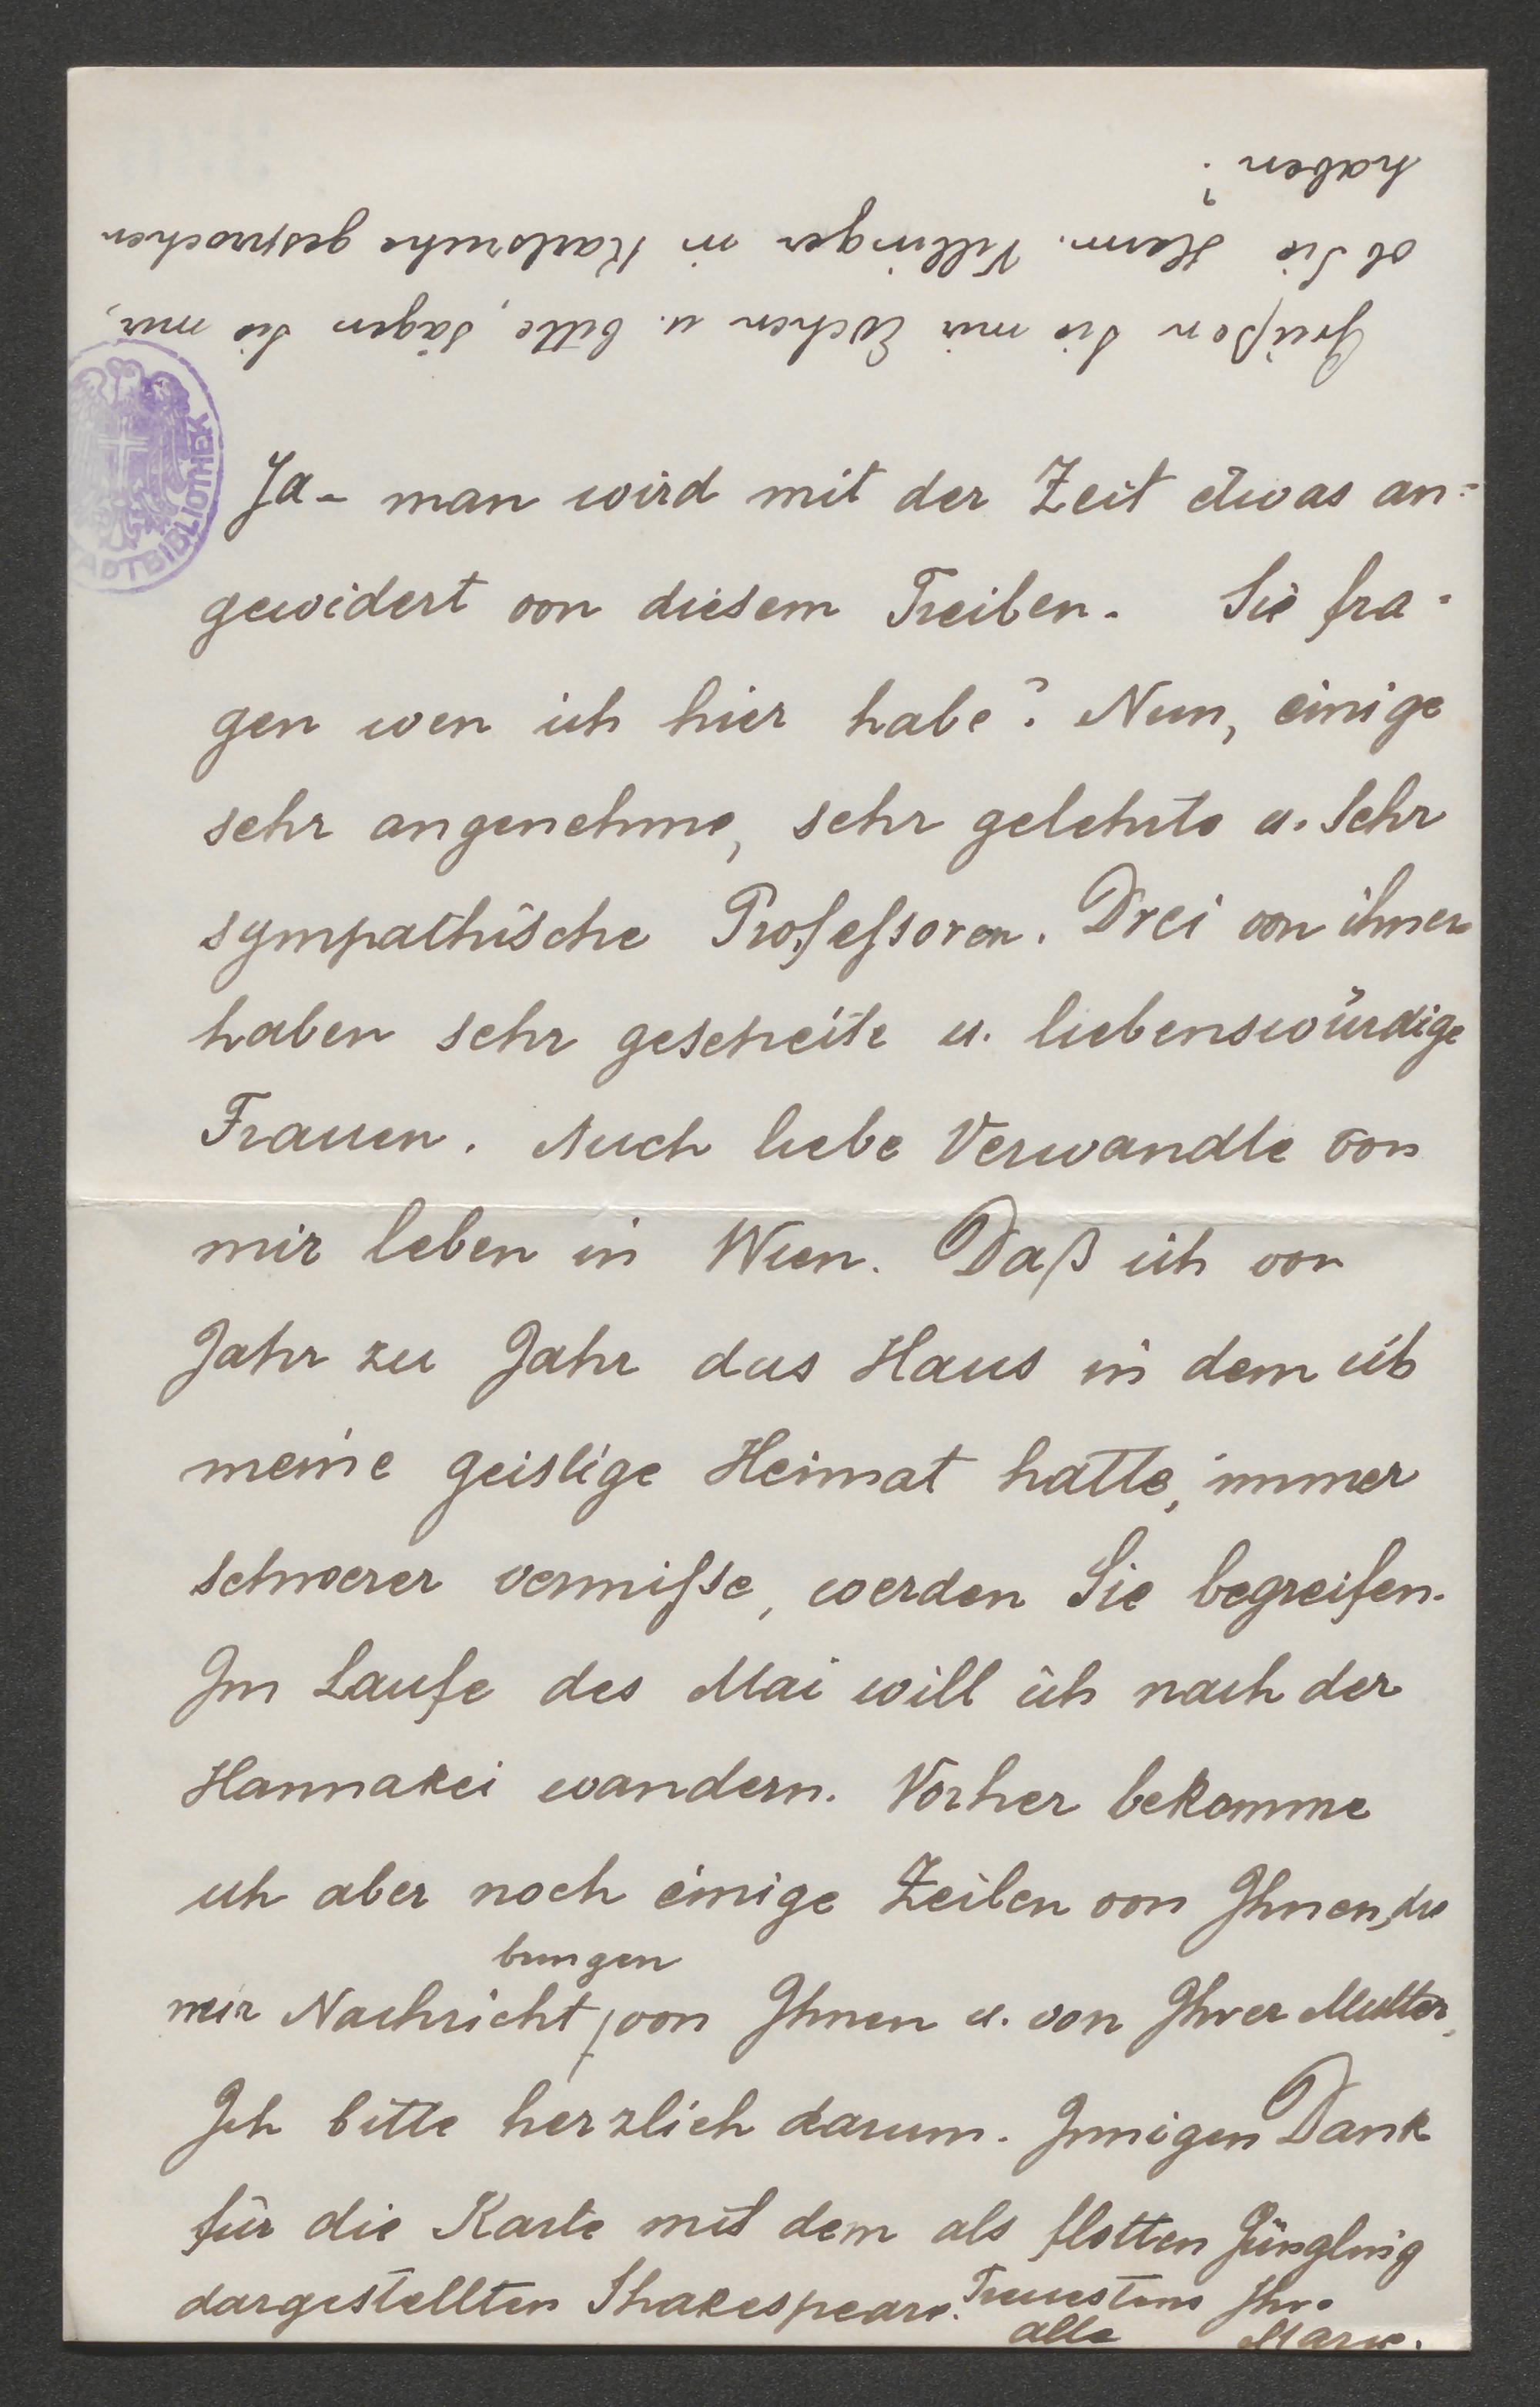 Ja – man wird mit der Zeit etwas an=
gewidert von diesem Treiben. Sie fra=
gen wen ich hier habe? Nun, einige
sehr angenehme, sehr gelehrte u. sehr
sympathische Professoren. Drei von ihnen
haben sehr gescheite u. liebenswürdige
Frauen. Auch liebe Verwandte von
mir leben in Wien. Daß ich von
Jahr zu Jahr das Haus in dem ich
meine geistige Heimat hatte, immer
schwerer vermisse, werden Sie begreifen.
Im Laufe des Mai will ich nach der
Hannakei wandern. Vorher bekomme
ich aber noch einige Zeilen von Ihnen, die
bringen
mir Nachricht von Ihnen u. von Ihrer Mutter.
Ich bitte herzlich darum. Innigen Dank
für die Karte mit dem als flotten Jüngling
dargestellten Shakespeare. Treuestens Ihre
alte Marie.
Grüßen Sie mir Evchen u. bitte, sagen Sie mir,
ob Sie Herm. Villinger in Karlsruhe gesprochen
haben?
ADTBIBLIOTHEK